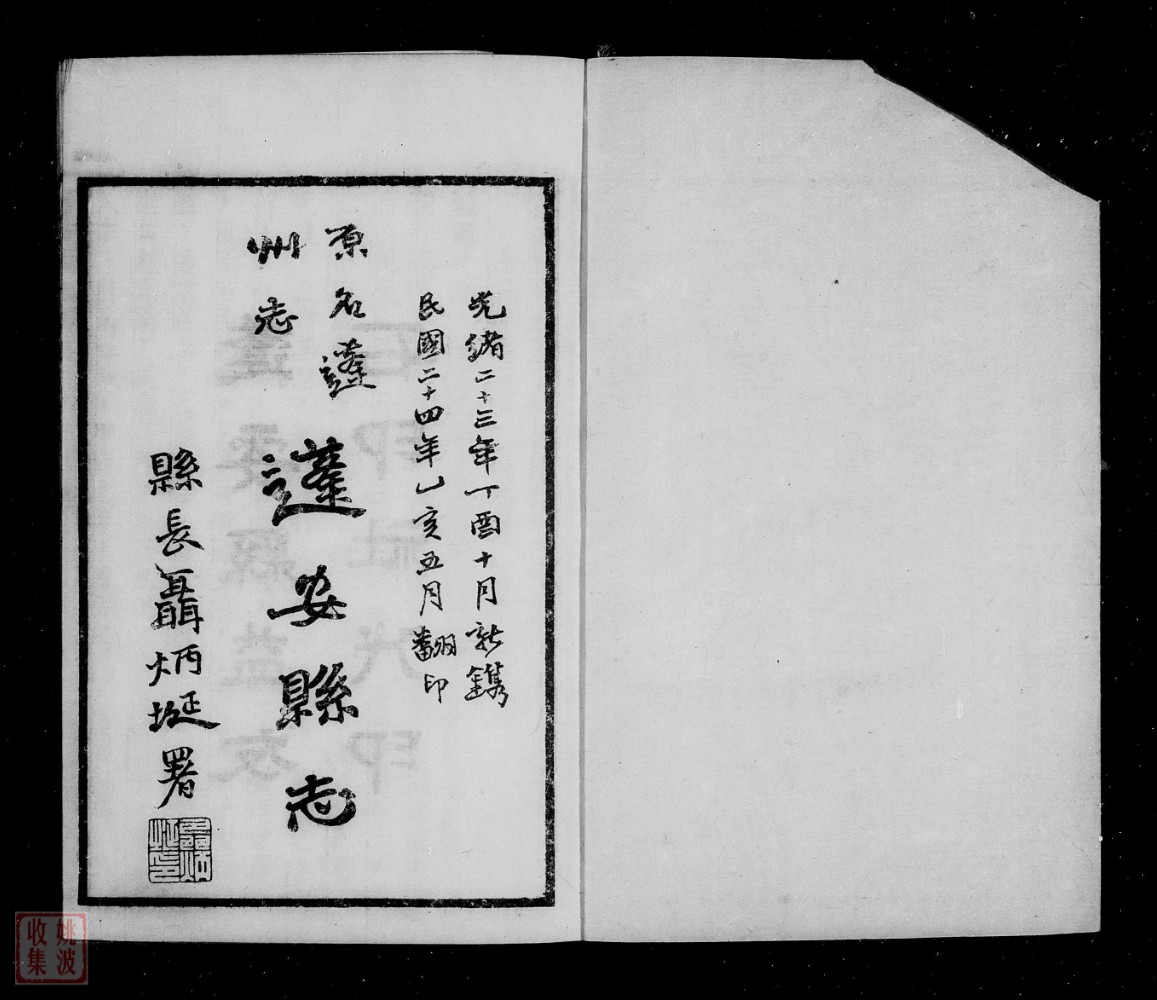 光緒二十三年丁酉十月新鐫
民國二十四年乙亥五月翻印
原名蓬
州志
蓬安縣志
縣長聶炳珽署
姚波
收集